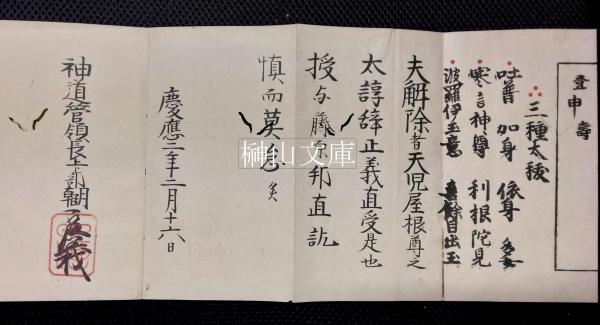 壹申壽
三種太祓
吐普 加身 依身 多女
寒言神尊 利根陀見
波羅伊玉意 喜餘目出玉
夫解除者天児屋根尊之
太諄辞正義直受是也
授与藤原邦直訖
慎而莫怠矣
慶應三年十二月十六日
神道管領長上
榊山文庫